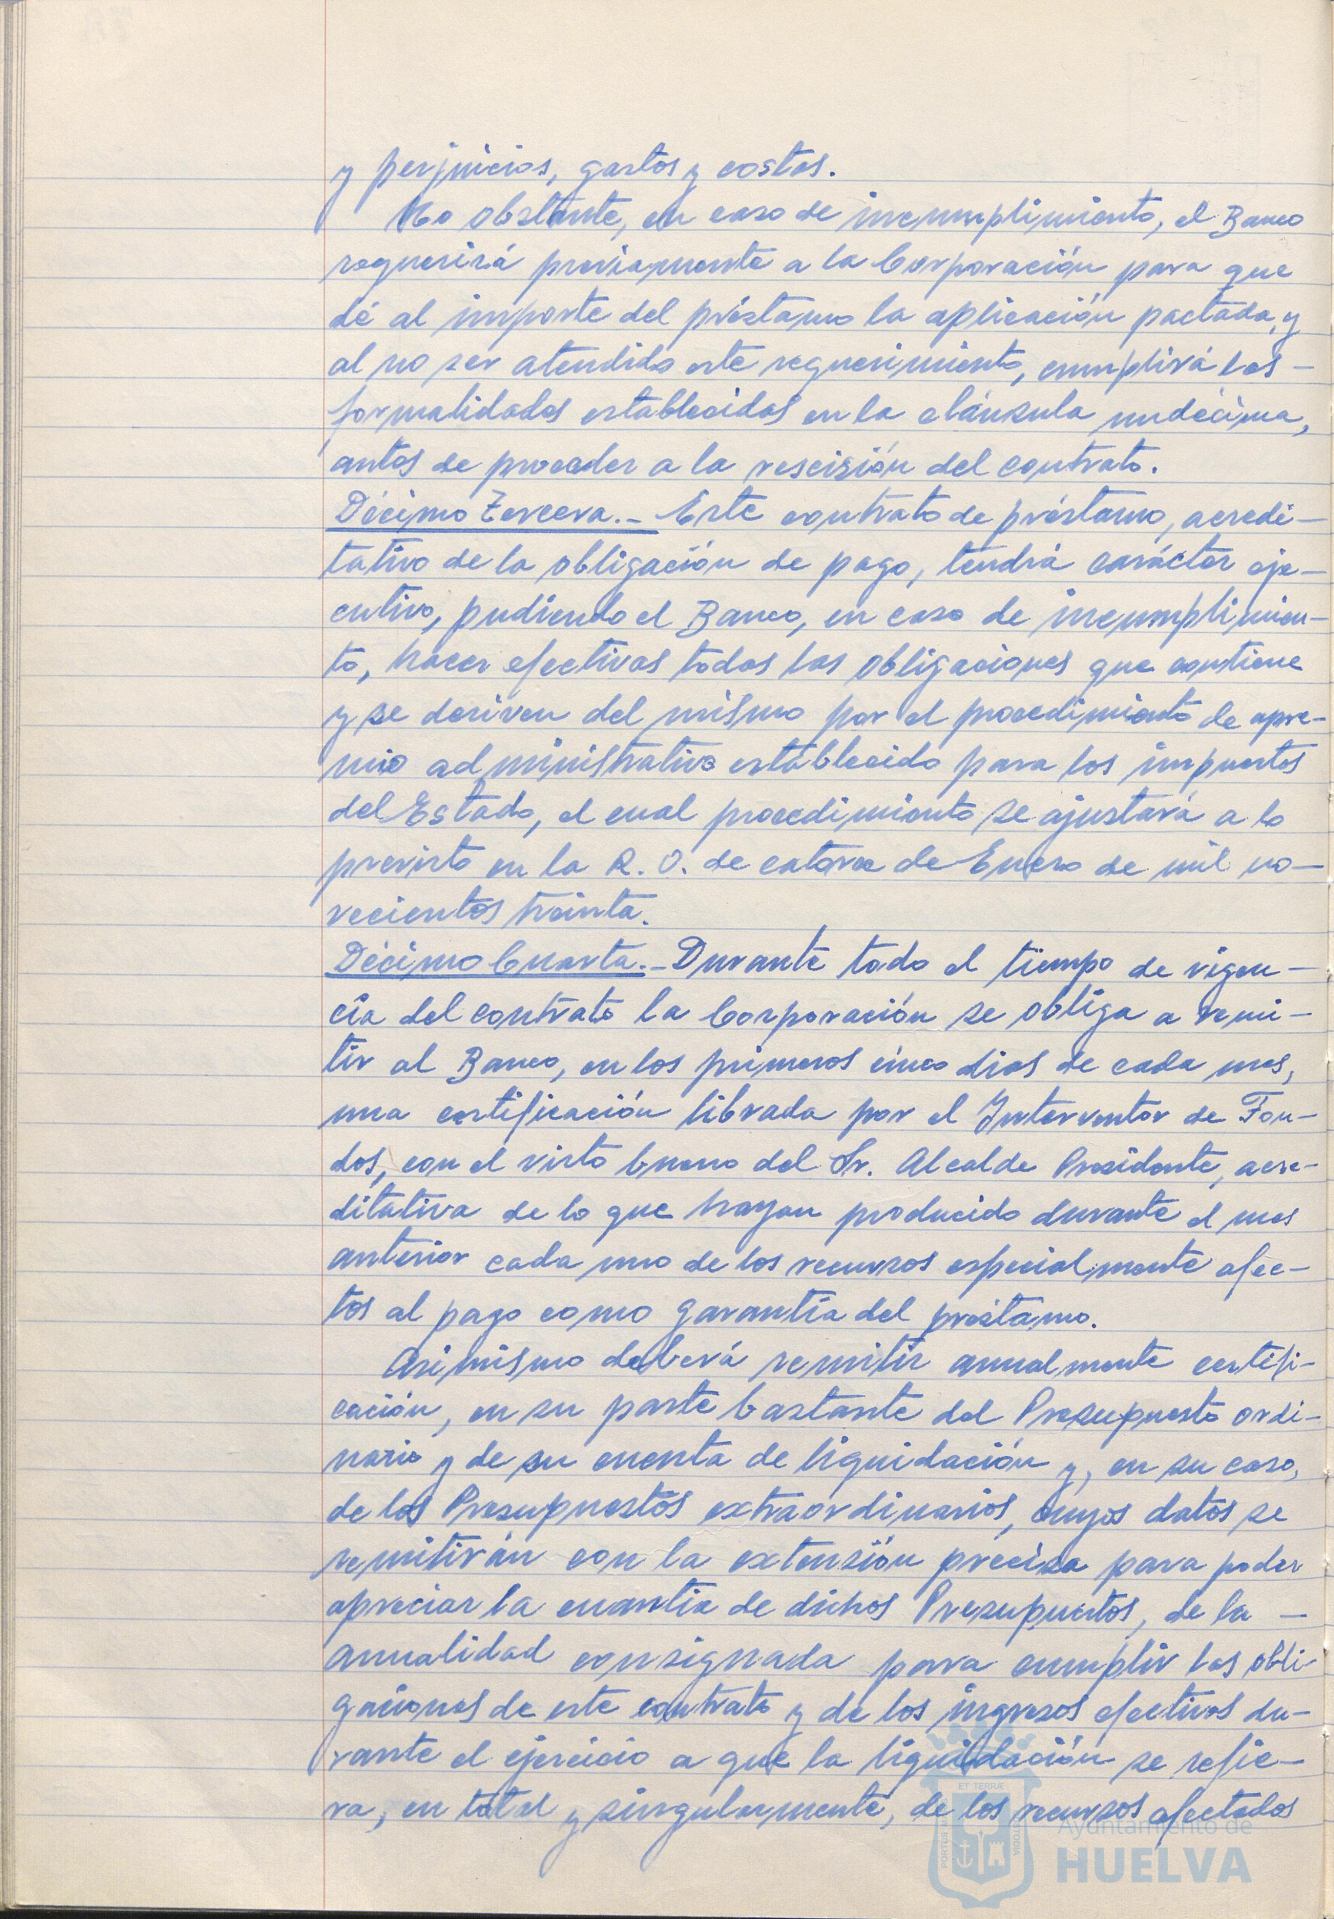 y perjuicios, gastos y costas.
No obstante, en caso de incumplimiento, el Banco
requerirá previamente a la Corporación para que
dé al importe del préstamo la aplicación pactada, y
al no ser atendido este requerimiento, cumplirá las -
formalidades establecidas en la cláusula undécima,
antes de proceder a la rescisión del contrato.
Décimo Tercera.- Este contrato de préstamo, acredi-
tativo de la obligación de pago, tendrá carácter eje-
cutivo, pudiendo el Banco, en caso de incumplimien-
to, hacer efectivas todas las obligaciones que contiene
y se deriven del mismo por el procedimiento de apre-
mio administrativo establecido para los impuestos
del Estado, el cual procedimiento se ajustará a lo
previsto en la R. O. de catorce de Enero de mil no-
vecientos treinta.
Décimo Cuarta.- Durante todo el tiempo de vigen-
cia del contrato la Corporación se obliga a remi-
tir al Banco, en los primeros cinco dias de cada mes,
una certificación librada por el Interventor de Fon-
dos, con el visto bueno del Sr. Alcalde Presidente, acre-
ditativa de lo que hayan producido durante el mes
anterior cada uno de los recursos especialmente afec-
tos al pago como garantía del préstamo.
Asimismo deberá remitir anualmente certifi-
cación, en su parte bastante del Presupuesto ordi-
nario y de su cuenta de liquidación y, en su caso,
de los Presupuestos extraordinarios, cuyos datos se
remitirán con la extensión precisa para poder
apreciar la cuantía de dichos Presupuestos, de la -
anualidad consignada para cumplir las obli-
gaciones de este contrato y de los ingresos efectivos du-
rante el ejercicio a que la liquidación se refie-
ra, en total y singularmente, de los recursos afectados
ET TERRÆ
Ayuntamiento de
HUELVA